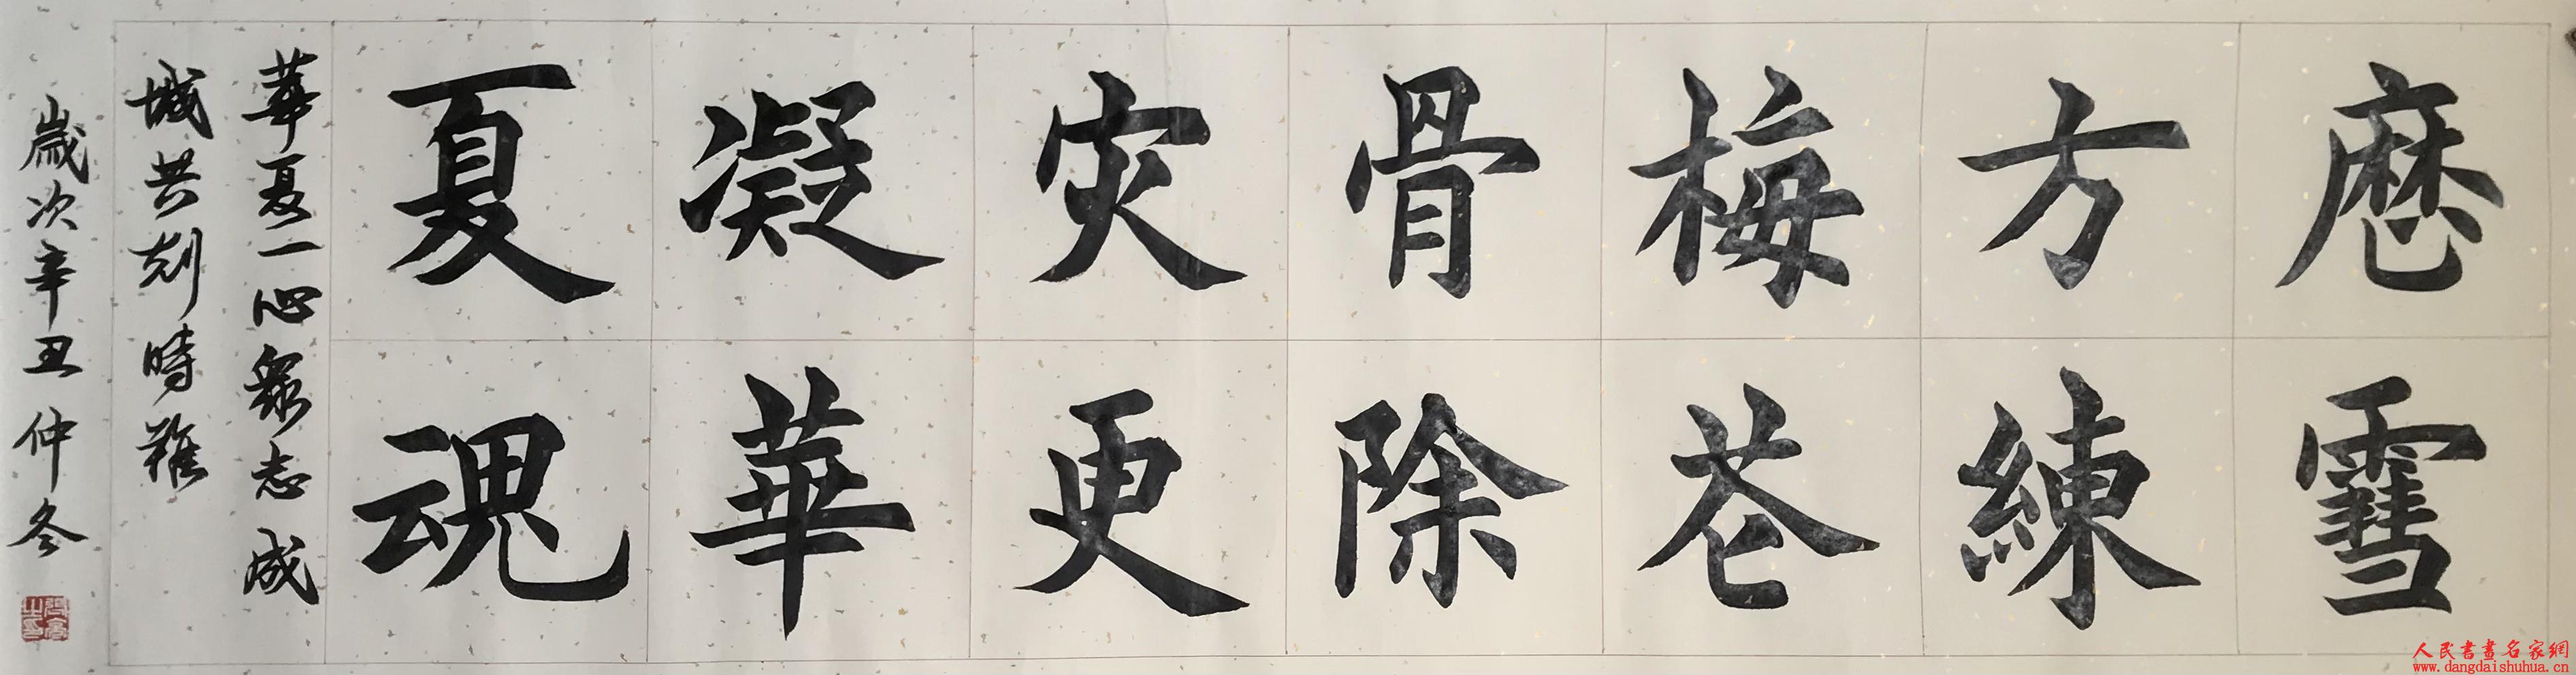 歷雪
方練
梅花
骨除
灾更
凝華
夏魂
華夏一心眾志成
城共剋時難
歲次辛丑仲冬
人民書畫名家網
www.dangdaishuhua.cn